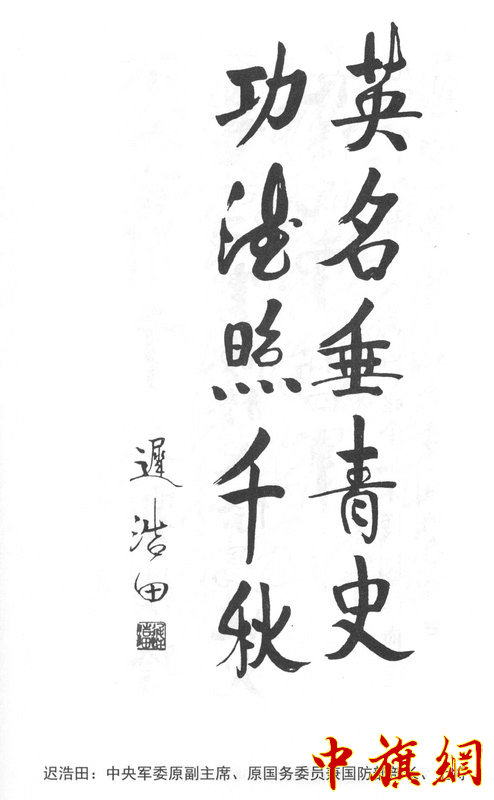 英名垂青史
功德照千秋
遲浩田
迟浩田：中央军委原副主席、原国务委员兼国防部部长、上将
中旗網